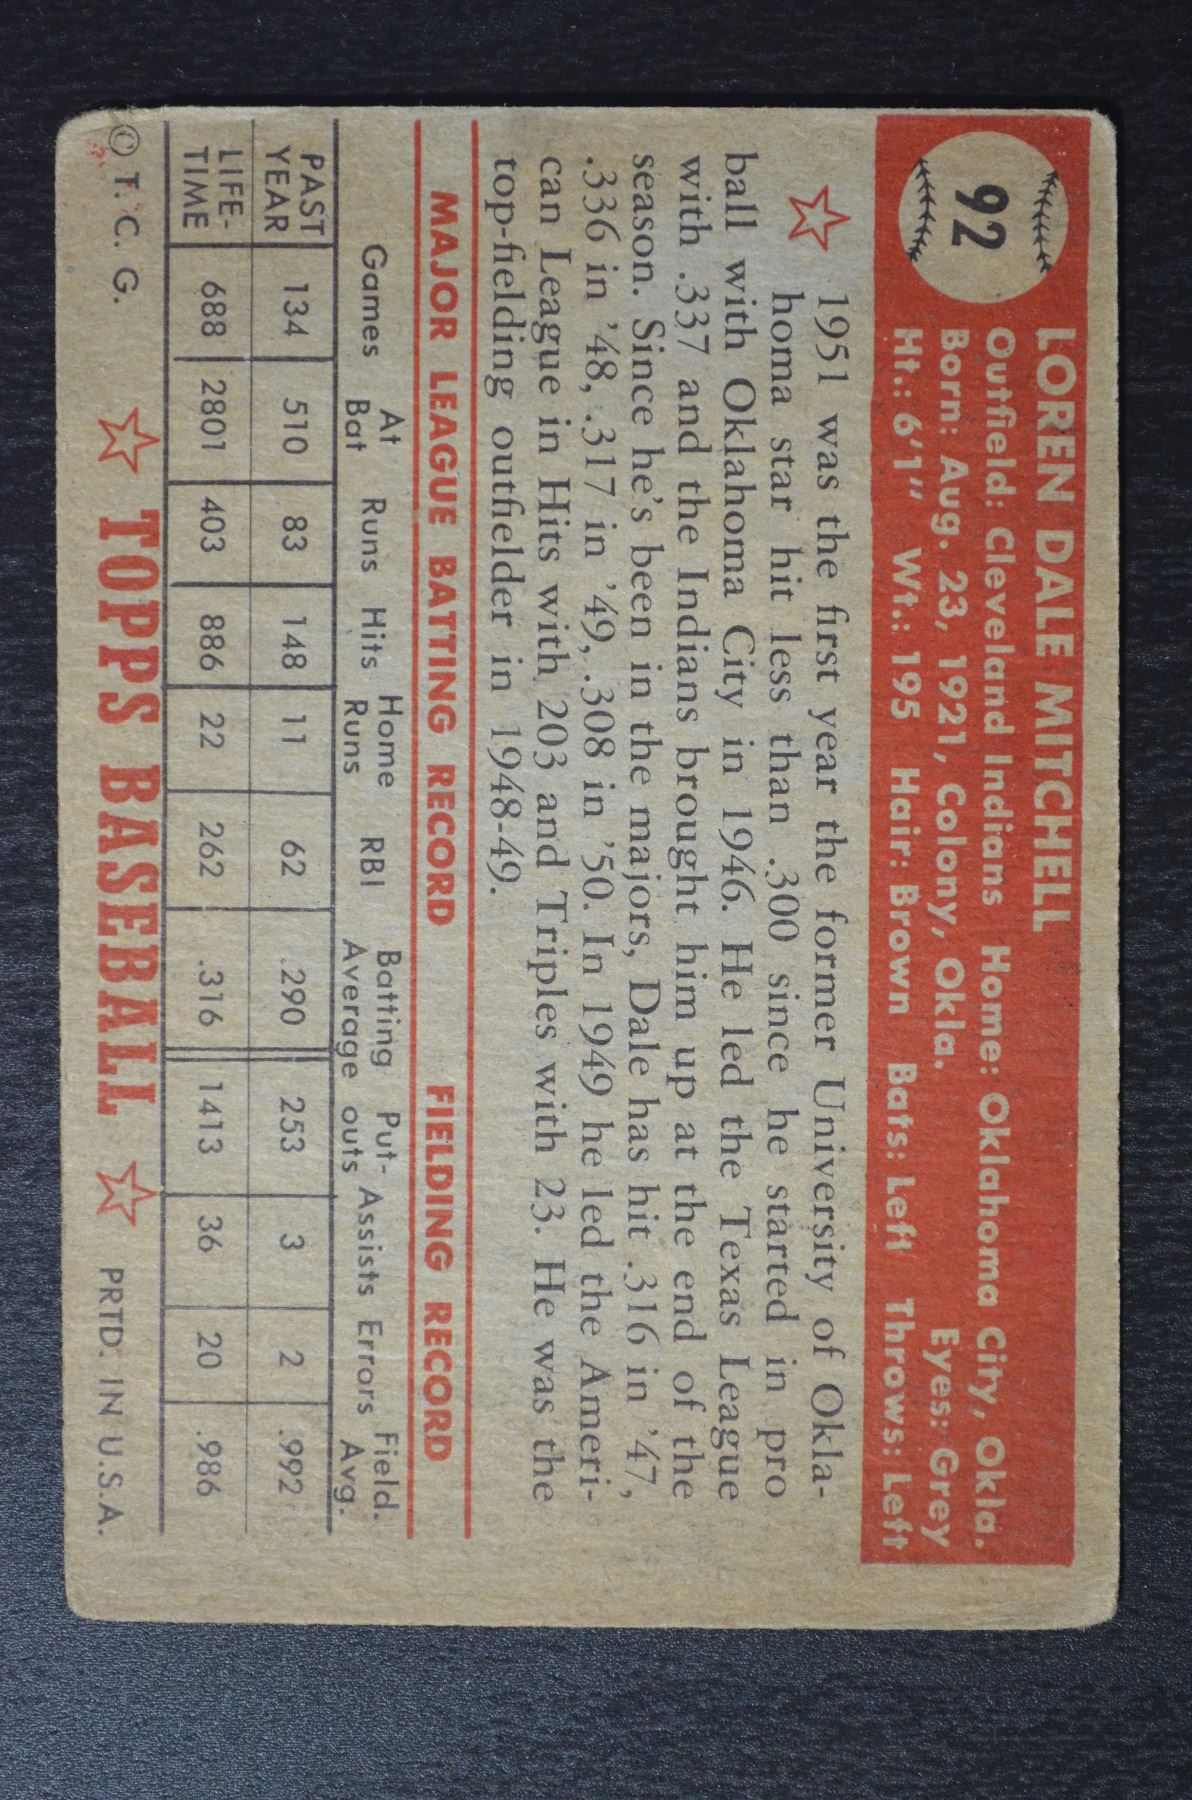 92
LOREN DALE MITCHELL
Outfield: Cleveland Indians Home: Oklahoma City, Okla.
Born: Aug. 23, 1921, Colony, Okla. Eyes: Grey
Ht.: 6'1" Wt.: 195 Hair: Brown Bats: Left Throws: Left
1951 was the first year the former University of Okla-
homa star hit less than .300 since he started in pro
ball with Oklahoma City in 1946. He led the Texas League
with .337 and the Indians brought him up at the end of the
season. Since he's been in the majors, Dale has hit .316 in '47,
.336 in '48, .317 in '49, .308 in '50. In 1949 he led the Ameri-
can League in Hits with 203 and Triples with 23. He was the
top-fielding outfielder in 1948-49.
MAJOR LEAGUE BATTING RECORD FIELDING RECORD
Games At Bat Runs Hits Home Runs RBI Batting Average Put-outs Assists Errors Field. Avg.
PAST YEAR 134 510 83 148 11 62 .290 253 3 2 .992
LIFE-TIME 688 2801 403 886 22 262 .316 1413 36 20 .986
© T. C. G. TOPPS BASEBALL PRTD. IN U.S.A.